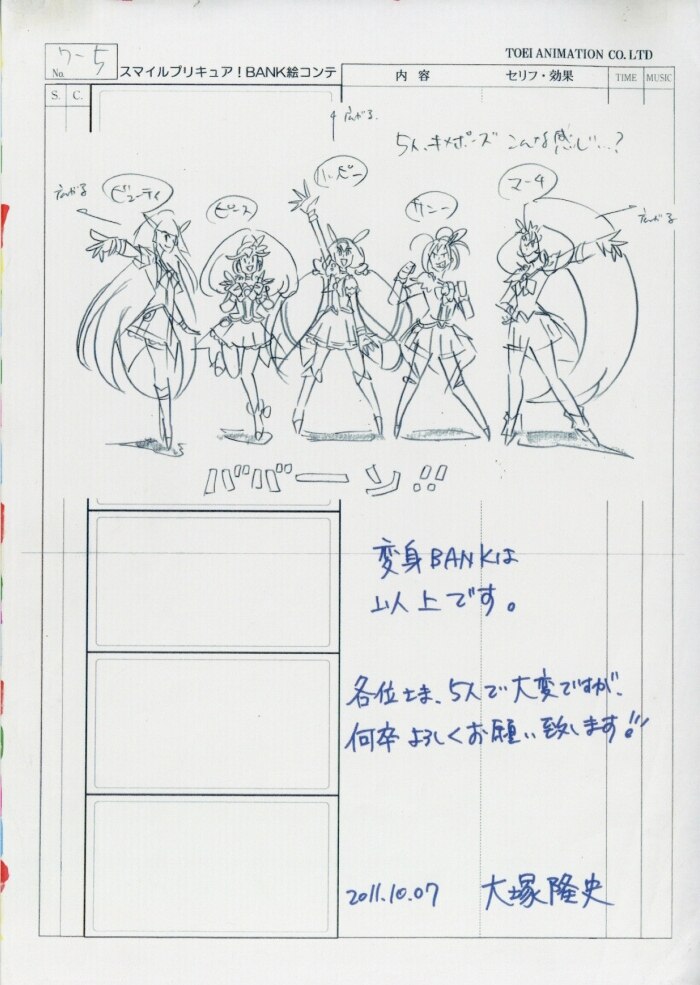 TOEI ANIMATION CO. LTD
No. ワ-5
スマイルプリキュア!BANK絵コンテ
内容
セリフ・効果
TIME
MUSIC
S.
C.
広がる
5人、キメポーズ こんな感じ…?
広がる
ビューティ
ピース
ハッピー
サニー
マーチ
広がる
ババーン!!
変身BANKは
以上です。
各位さま、5人で大変ですが、
何卒よろしくお願い致します!!
2011.10.07
大塚隆史